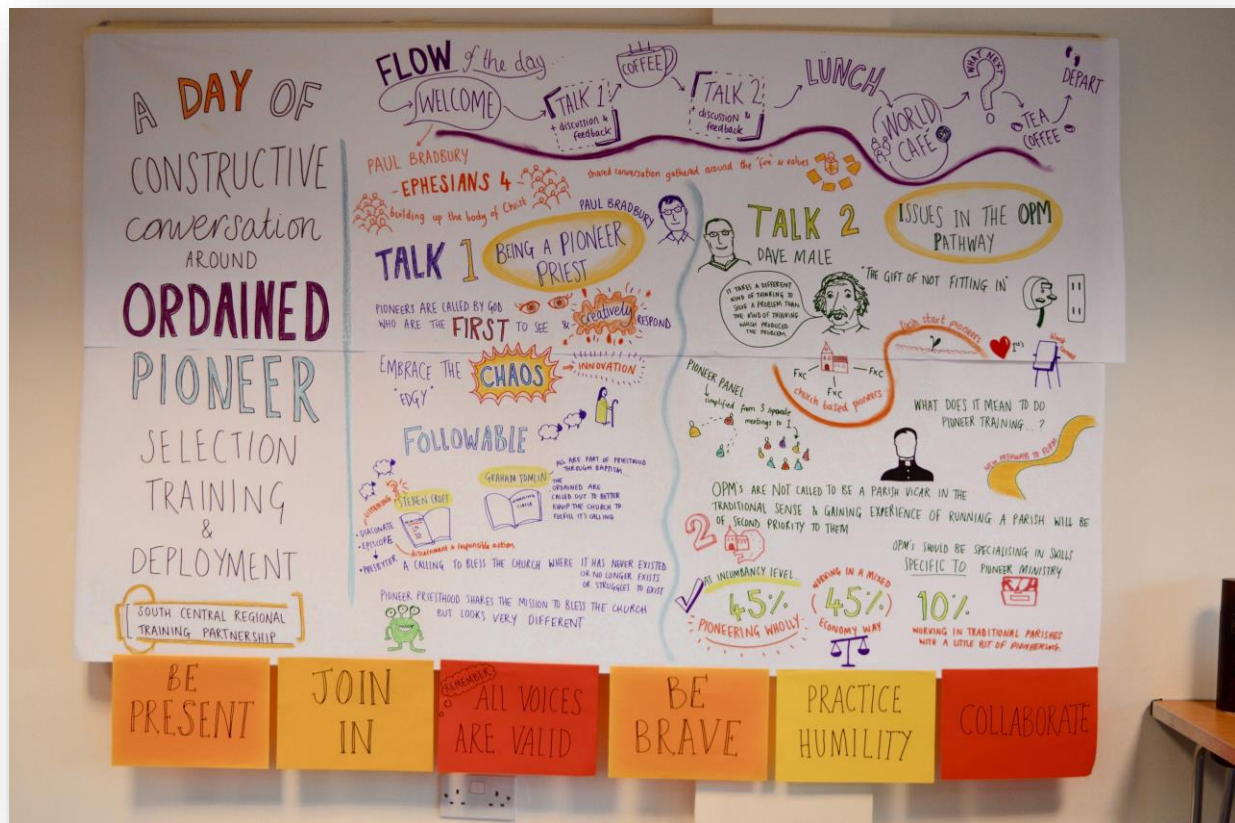 A DAY OF
CONSTRUCTIVE
conversation
AROUND
ORDAINED
PIONEER
SELECTION
TRAINING
&
DEPLOYMENT
SOUTH CENTRAL REGIONAL
TRAINING PARTNERSHIP
FLOW of the day...
WELCOME
TALK 1
+ discussion &
feedback
COFFEE
TALK 2
+ discussion &
feedback
LUNCH
WORLD
CAFE
WHAT NEXT
?
TEA
COFFEE
DEPART
PAUL BRADBURY
- EPHESIANS 4 -
building up the body of Christ
shared conversation gathered around the "fire" of values
PAUL BRADBURY
TALK 1
BEING A PIONEER
PRIEST
PIONEERS ARE CALLED BY GOD
WHO ARE THE FIRST TO SEE & creatively RESPOND
EMBRACE THE CHAOS → INNOVATION
"EDGY"
FOLLOWABLE
LISTENING
STEVEN CROFT
• DIACONATE
• EPISCOPE
• PRESBYTER
discernment & responsible action
GRAHAM TOMLIN
ALL ARE PART OF PRIESTHOOD
THROUGH BAPTISM
THE
ORDAINED ARE
CALLED OUT TO BETTER
EQUIP THE CHURCH TO
FULFIL IT'S CALLING
A CALLING TO BLESS THE CHURCH WHERE IT HAS NEVER EXISTED
OR NO LONGER EXISTS
OR STRUGGLES TO EXIST
PIONEER PRIESTHOOD SHARES THE MISSION TO BLESS THE CHURCH
BUT LOOKS VERY DIFFERENT
TALK 2
DAVE MALE
ISSUES IN THE OPM
PATHWAY
IT TAKES A DIFFERENT
KIND OF THINKING TO
SOLVE A PROBLEM THAN
THE KIND OF THINKING
WHICH PRODUCED
THE PROBLEM
"THE GIFT OF NOT FITTING IN"
fresh start pioneers
1st's
FxC
FxC
FxC
church based pioneers
PIONEER PANEL
simplified from 3 separate
meetings to 1
WHAT DOES IT MEAN TO DO
PIONEER TRAINING...?
NEW PATHWAYS TO FORM
OPM's ARE NOT CALLED TO BE A PARISH VICAR IN THE
TRADITIONAL SENSE & GAINING EXPERIENCE OF RUNNING A PARISH WILL BE
OF SECOND PRIORITY TO THEM
2
OPM's SHOULD BE SPECIALISING IN SKILLS
SPECIFIC TO PIONEER MINISTRY
AT INCUMBANCY LEVEL...
45%
PIONEERING WHOLLY
WORKING IN A MIXED
45%
ECONOMY WAY
10%
WORKING IN TRADITIONAL PARISHES
WITH A LITTLE BIT OF PIONEERING.
BE
PRESENT
JOIN
IN
REMEMBER
ALL VOICES
ARE VALID
BE
BRAVE
PRACTICE
HUMILITY
COLLABORATE